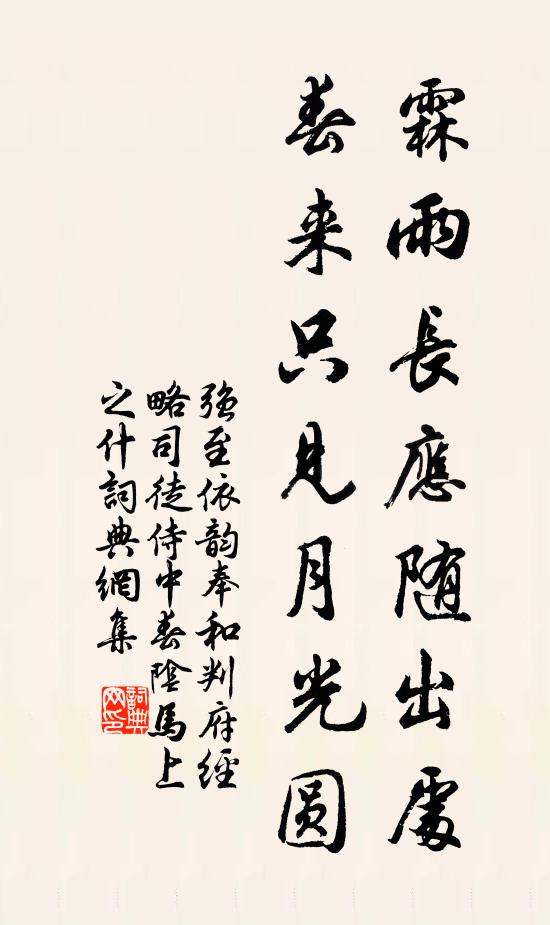 霖雨長應随出處
春来只見月光圆
强至依韵奉和判府經
略司徒侍中春陰馬上
之什詞典網集
詞典
网印